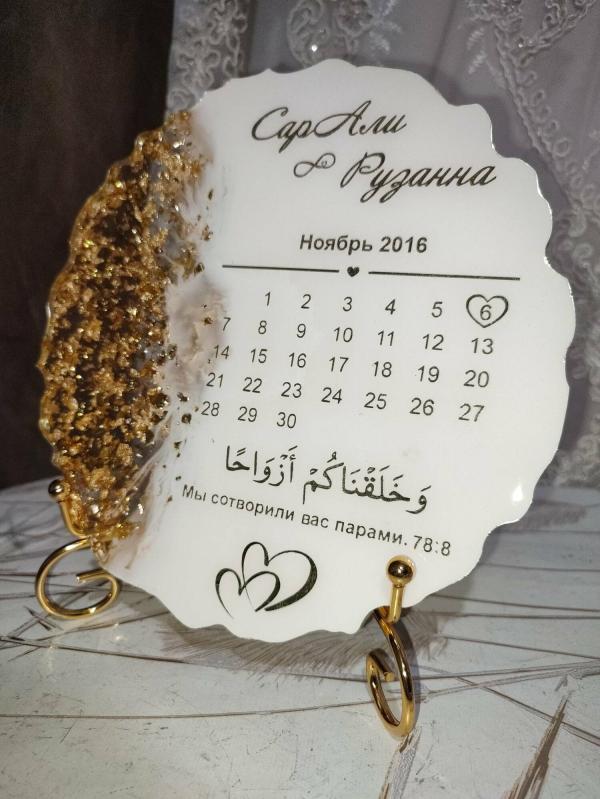 СарАли
∞ Рузанна
Ноябрь 2016
1 2 3 4 5 6
7 8 9 10 11 12 13
14 15 16 17 18 19 20
21 22 23 24 25 26 27
28 29 30
وَخَلَقْنَاكُمْ أَزْوَاجًا
Мы сотворили вас парами. 78:8